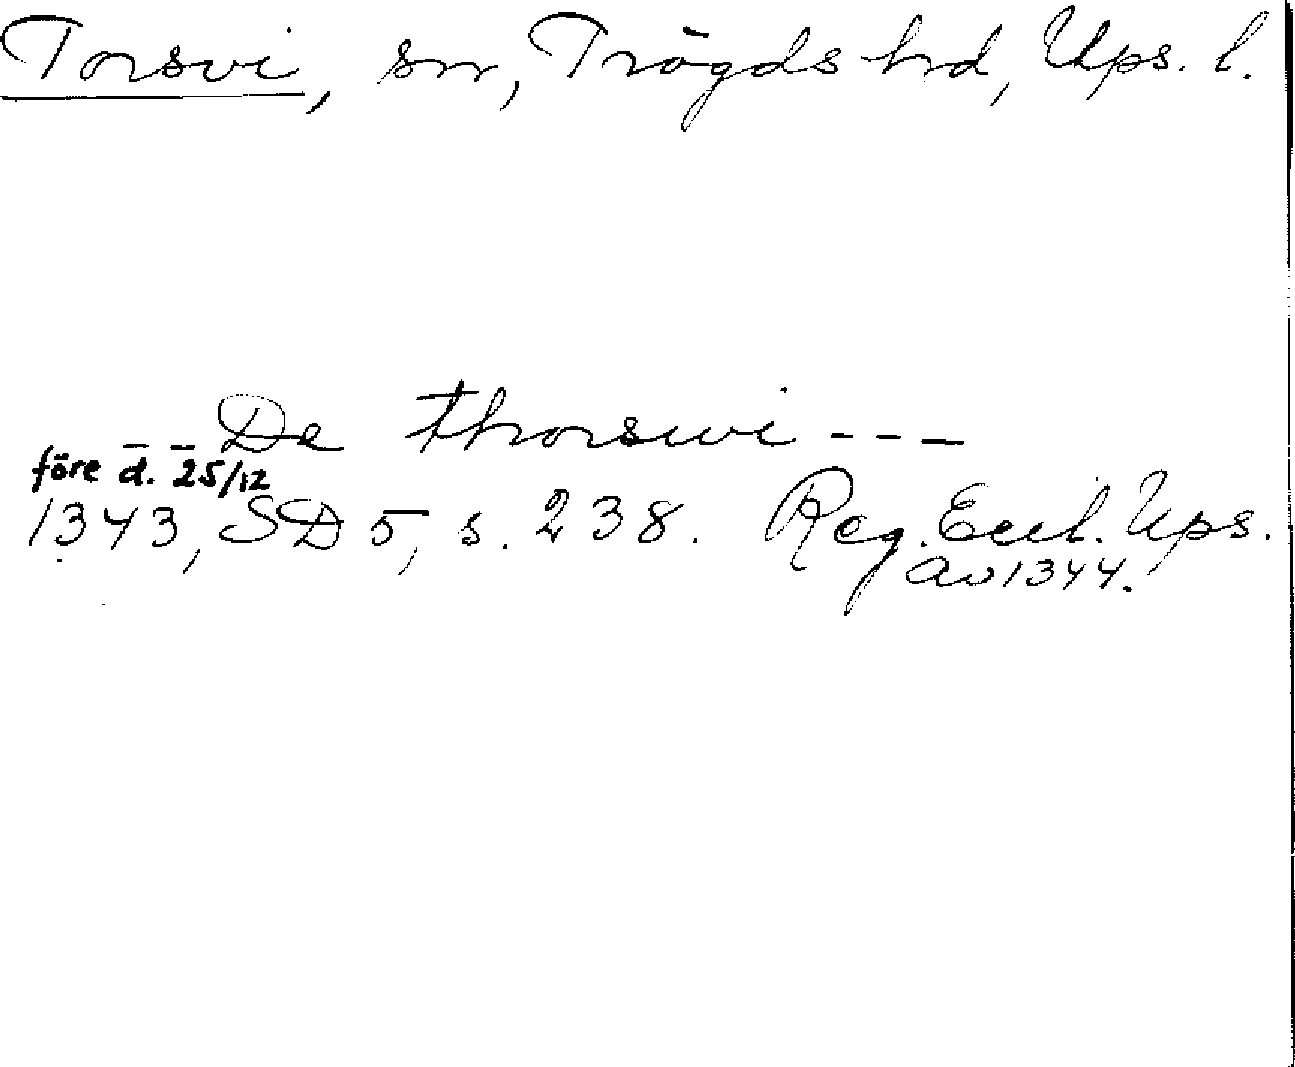 Torsvi, sn, Trögds hd, Ups. l.
De thorswi ---
före d. 25/12
1343, SD 5, s. 238. Reg. Eccl. Ups.
av 1344.